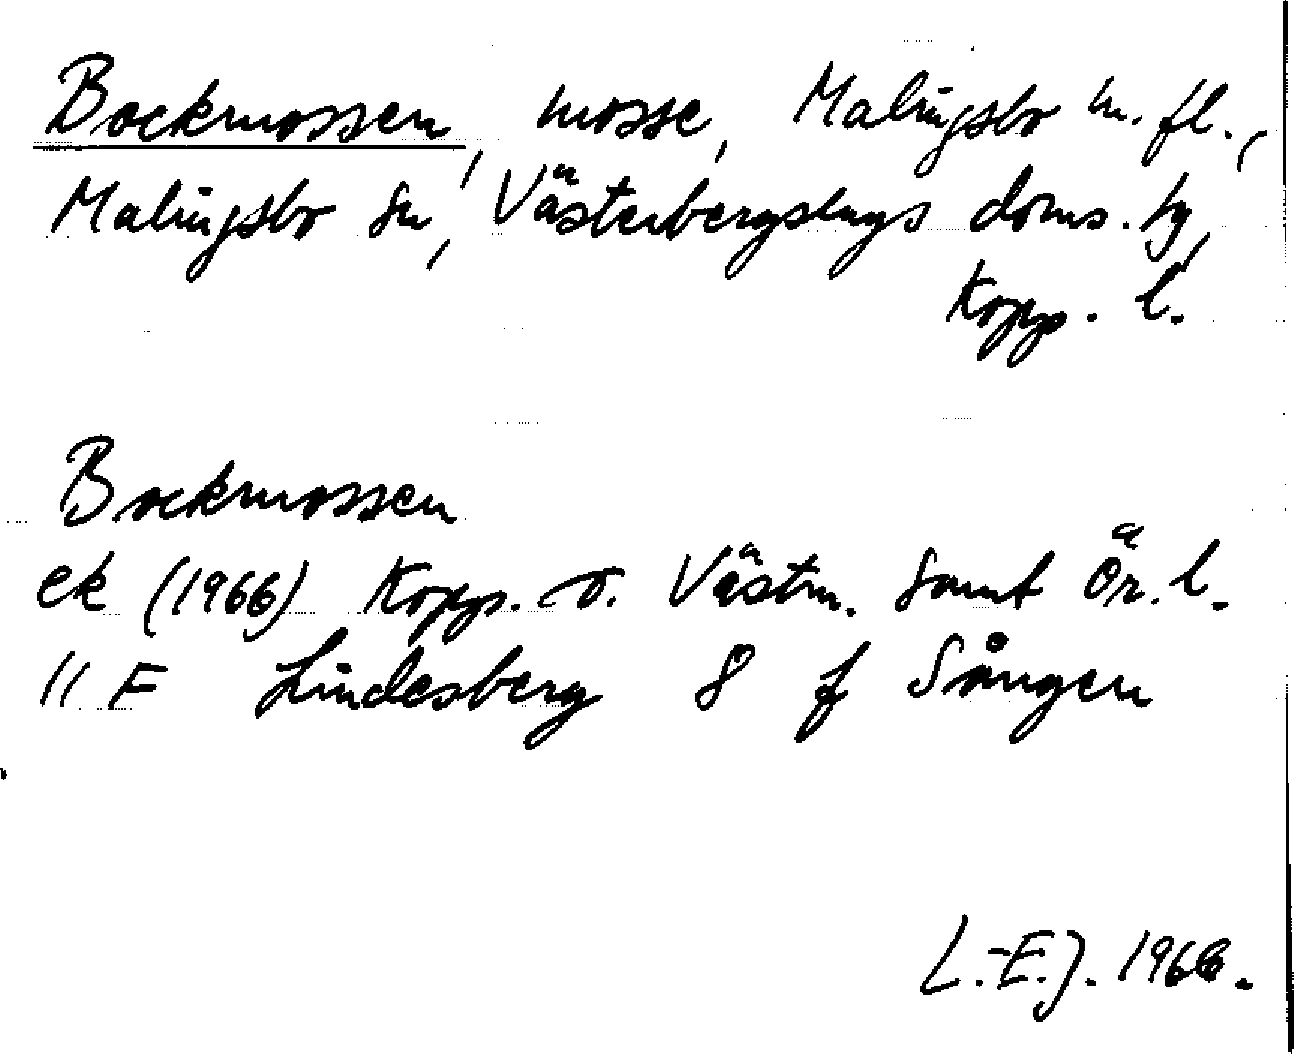 Bockmossen, mosse, Malingsbo m. fl.,
Malingsbo sn, Västerbergslags doms. tg,
Kopp. l.
Bockmossen
ek (1966) Kopp. o. Västm. samt Ör. l.
11 F Lindesberg 8 f Sången
L.-E.J. 1966.